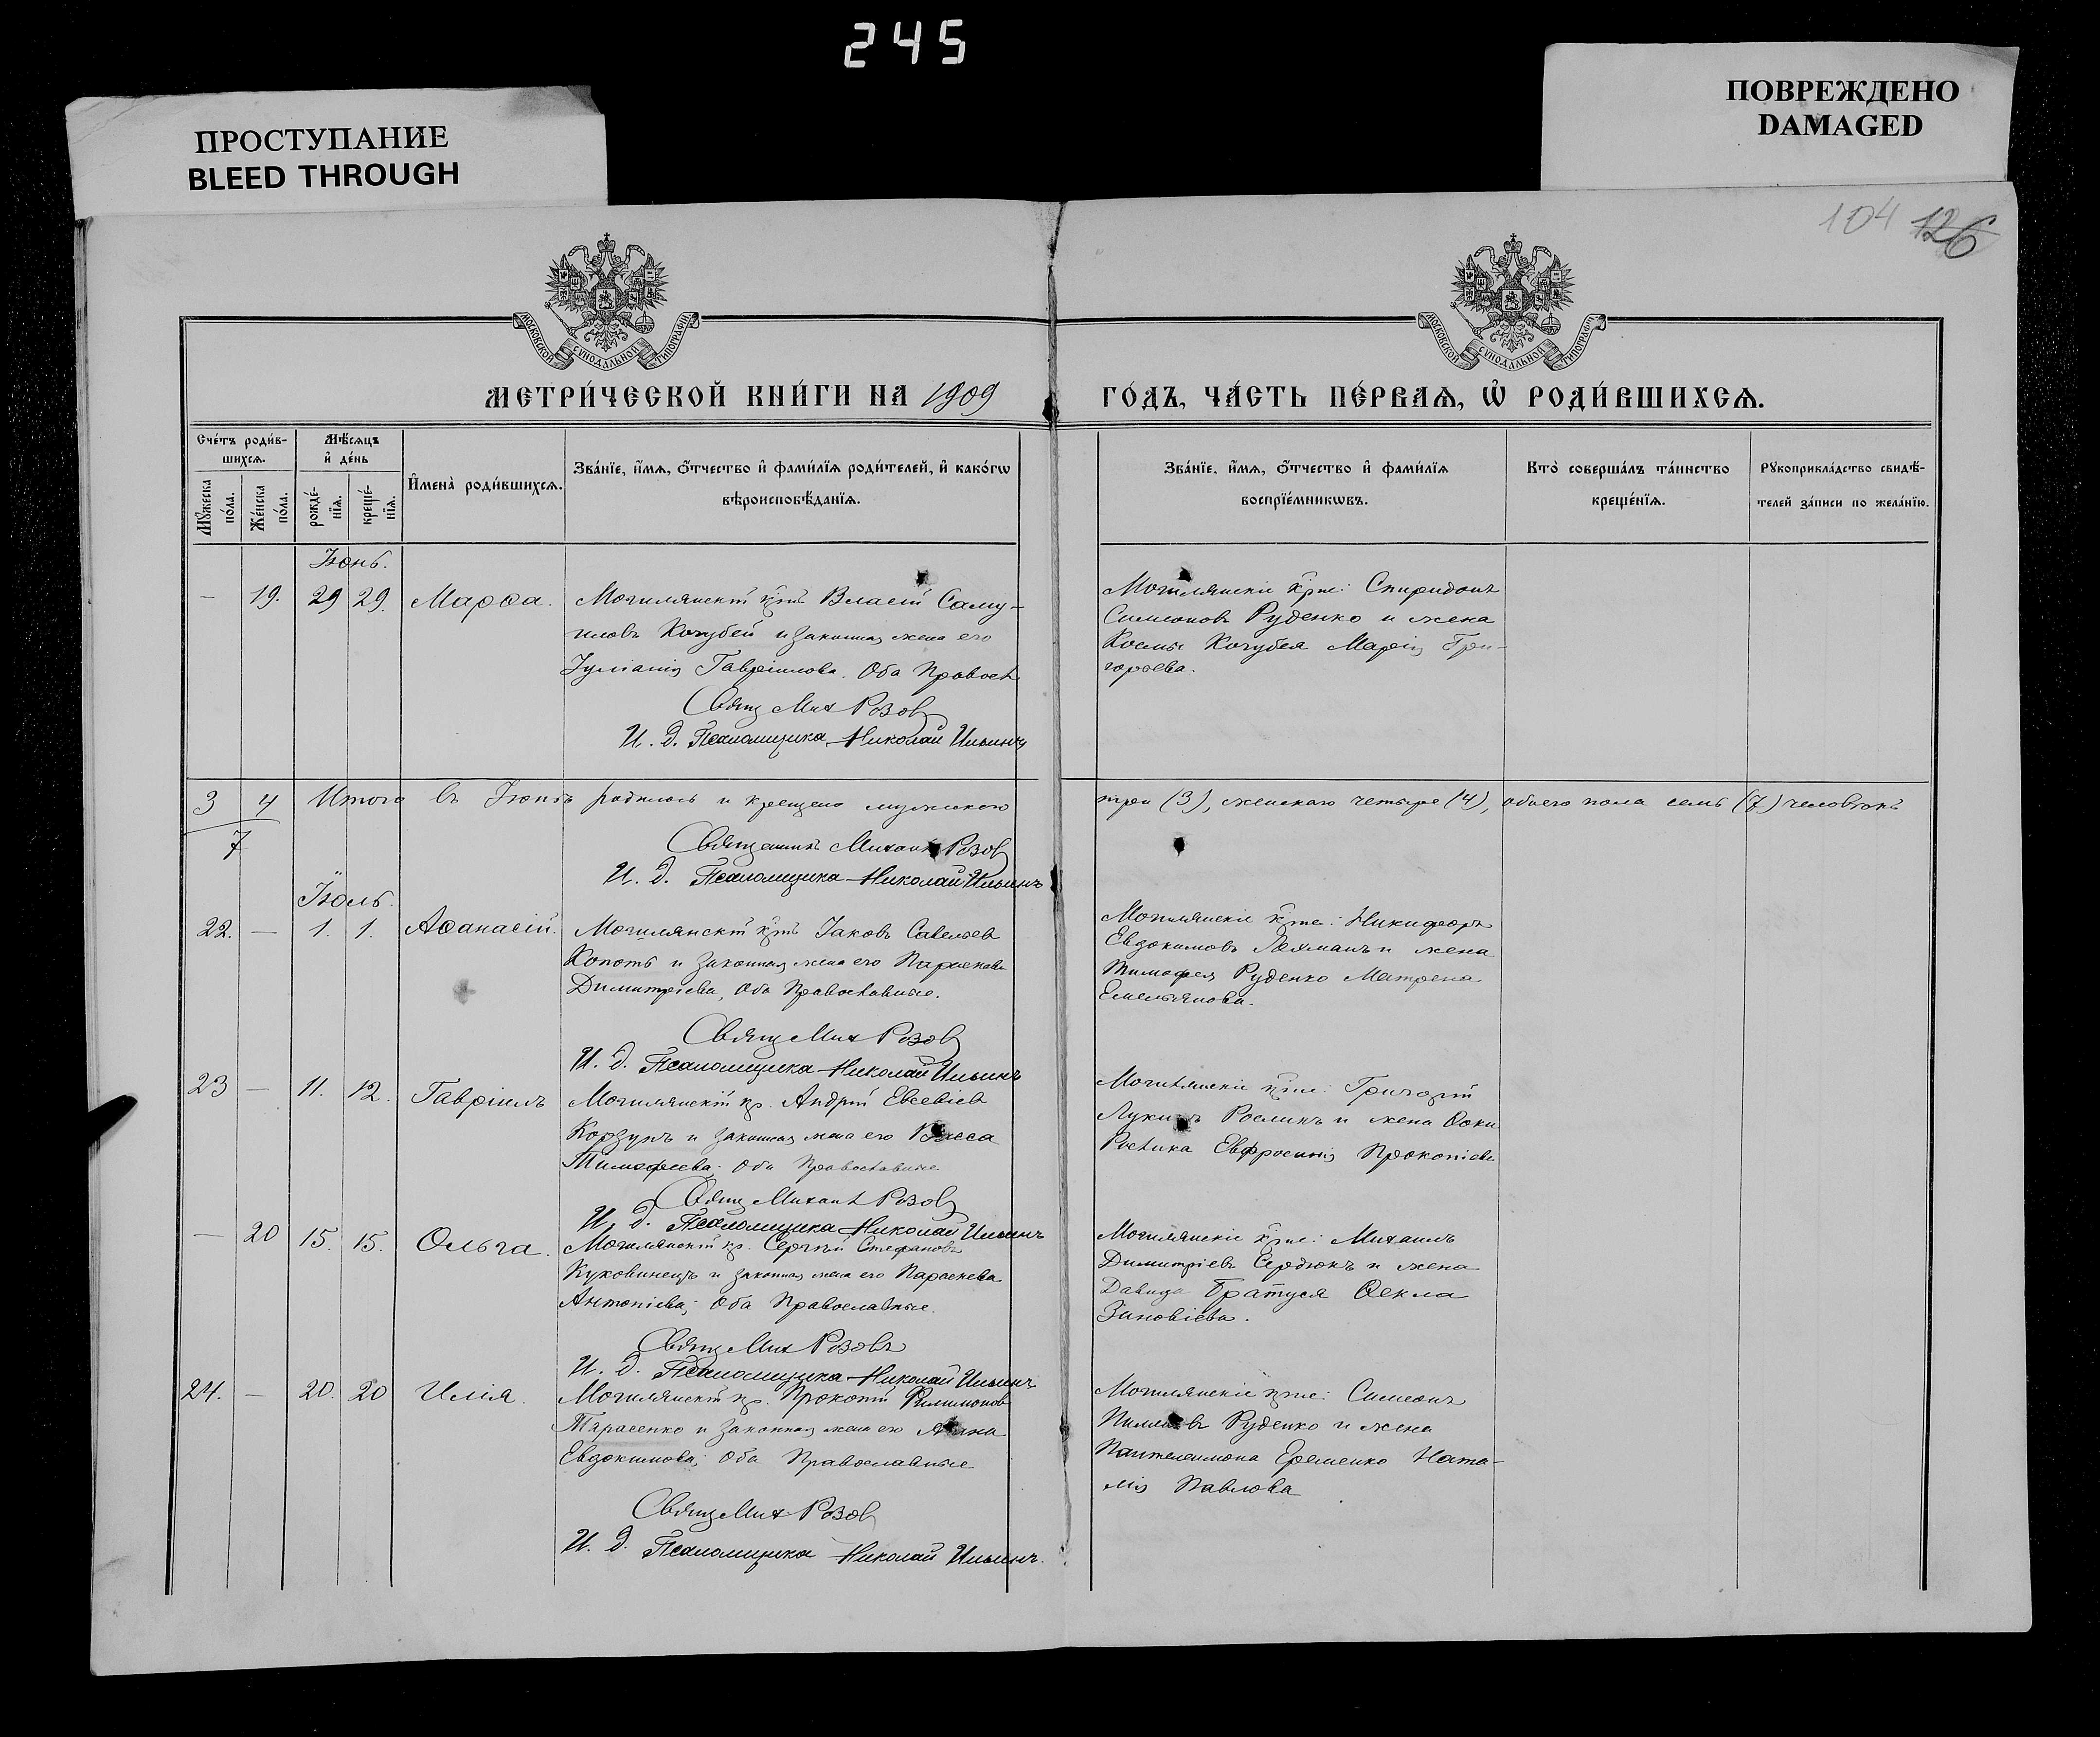 245
ПРОСТУПАНИЕ
BLEED THROUGH
ПОВРЕЖДЕНО
DAMAGED
104 126
МОСКОВСКОЙ СѴНОДАЛЬНОЙ ТИПОГРАФІИ
МОСКОВСКОЙ СѴНОДАЛЬНОЙ ТИПОГРАФІИ
МЕТРИ́ЧЕСКОЙ КНИ́ГИ НА 1909 ГО́ДЪ, ЧА́СТЬ ПЕ́РВАѦ, Ѡ҆ РОДИ́ВШИХСѦ.
Сче́тъ роди́в-
шихсѧ.
Мꙋжеска по́ла.
Же́нска по́ла.
Мѣ́сѧцъ
и҆ де́нь
рожде́-
нїѧ.
креще́-
нїѧ.
И҆мена̀ роди́вшихсѧ.
Зва́нїе, и҆́мѧ, ѻ҆́тчество и҆ фами́лїѧ роди́телей, и҆ како́гѡ
вѣроисповѣ́данїѧ.
Зва́нїе, и҆́мѧ, ѻ҆́тчество и҆ фами́лїѧ
воспрїе́мникѡвъ.
Кто̀ соверша́лъ та́инство
креще́нїѧ.
Рꙋкоприкла́дство свидѣ́-
телей за́писи по жела́нїю.
Іюнь.
— 19. 29 29. Марѳа. Могилянскій крнъ Власій Саму-
иловъ Кочубей и законная жена его
Іуліанія Гавріилова. Оба Правосл
Свящ Мих Розов
И. д. Псаломщика Николай Ильинъ
Могилянскіе крне: Спиридонъ
Симеоновъ Руденко и жена
Космы Кочубея Марія Гри-
горьева.
3 4 Итого въ Іюнѣ родилось и крещено мужескаго три (3), женскаго четыре (4), обоего пола семь (7) человѣкъ
7
Священникъ Михаил Розов
И. д. Псаломщика Николай Ильинъ
Іюль.
22. — 1. 1. Аѳанасій. Могилянскій крнъ Іаковъ Савельев
Копоть и законная жена его Параскева
Димитріева, Оба Православные.
Свящ Мих Розов
И. д. Псаломщика Николай Ильинъ
Могилянскіе крне: Никифоръ
Евдокимовъ Лахманъ и жена
Тимофея Руденко Матрена
Емельянова.
23 — 11. 12. Гавріилъ Могилянскій кр. Андрей Евсевіев
Корзунъ и законная жена его
Тимофеева. Оба Православные
Свящ Михаил Розов
И. д. Псаломщика Николай Ильинъ
Могилянскіе крне: Григорій
Рослик и жена Ѳоки
Рослика Евфросинія Прокопіева
— 20 15. 15. Ольга. Могилянскій кр. Сергѣй Стефановъ
Куковинецъ и законная жена его Параскева
Антоніева; Оба Православные.
Свящ Мих Розовъ
И. д. Псаломщика Николай Ильинъ
Могилянскіе крне: Михаилъ
Димитріевъ Сердюкъ и жена
Давида Братуся Ѳекла
Зиновіева.
24. — 20. 20 Илія. Могилянскій кр. Прокопій Филимонов
Тарасенко и законная жена его Анна
Евдокимова; Оба Православные
Свящ Мих Розов
И. д. Псаломщика Николай Ильинъ.
Могилянскіе крне: Симеонъ
Руденко и жена
Пантелеимона Еременко Ната-
лія Павлова